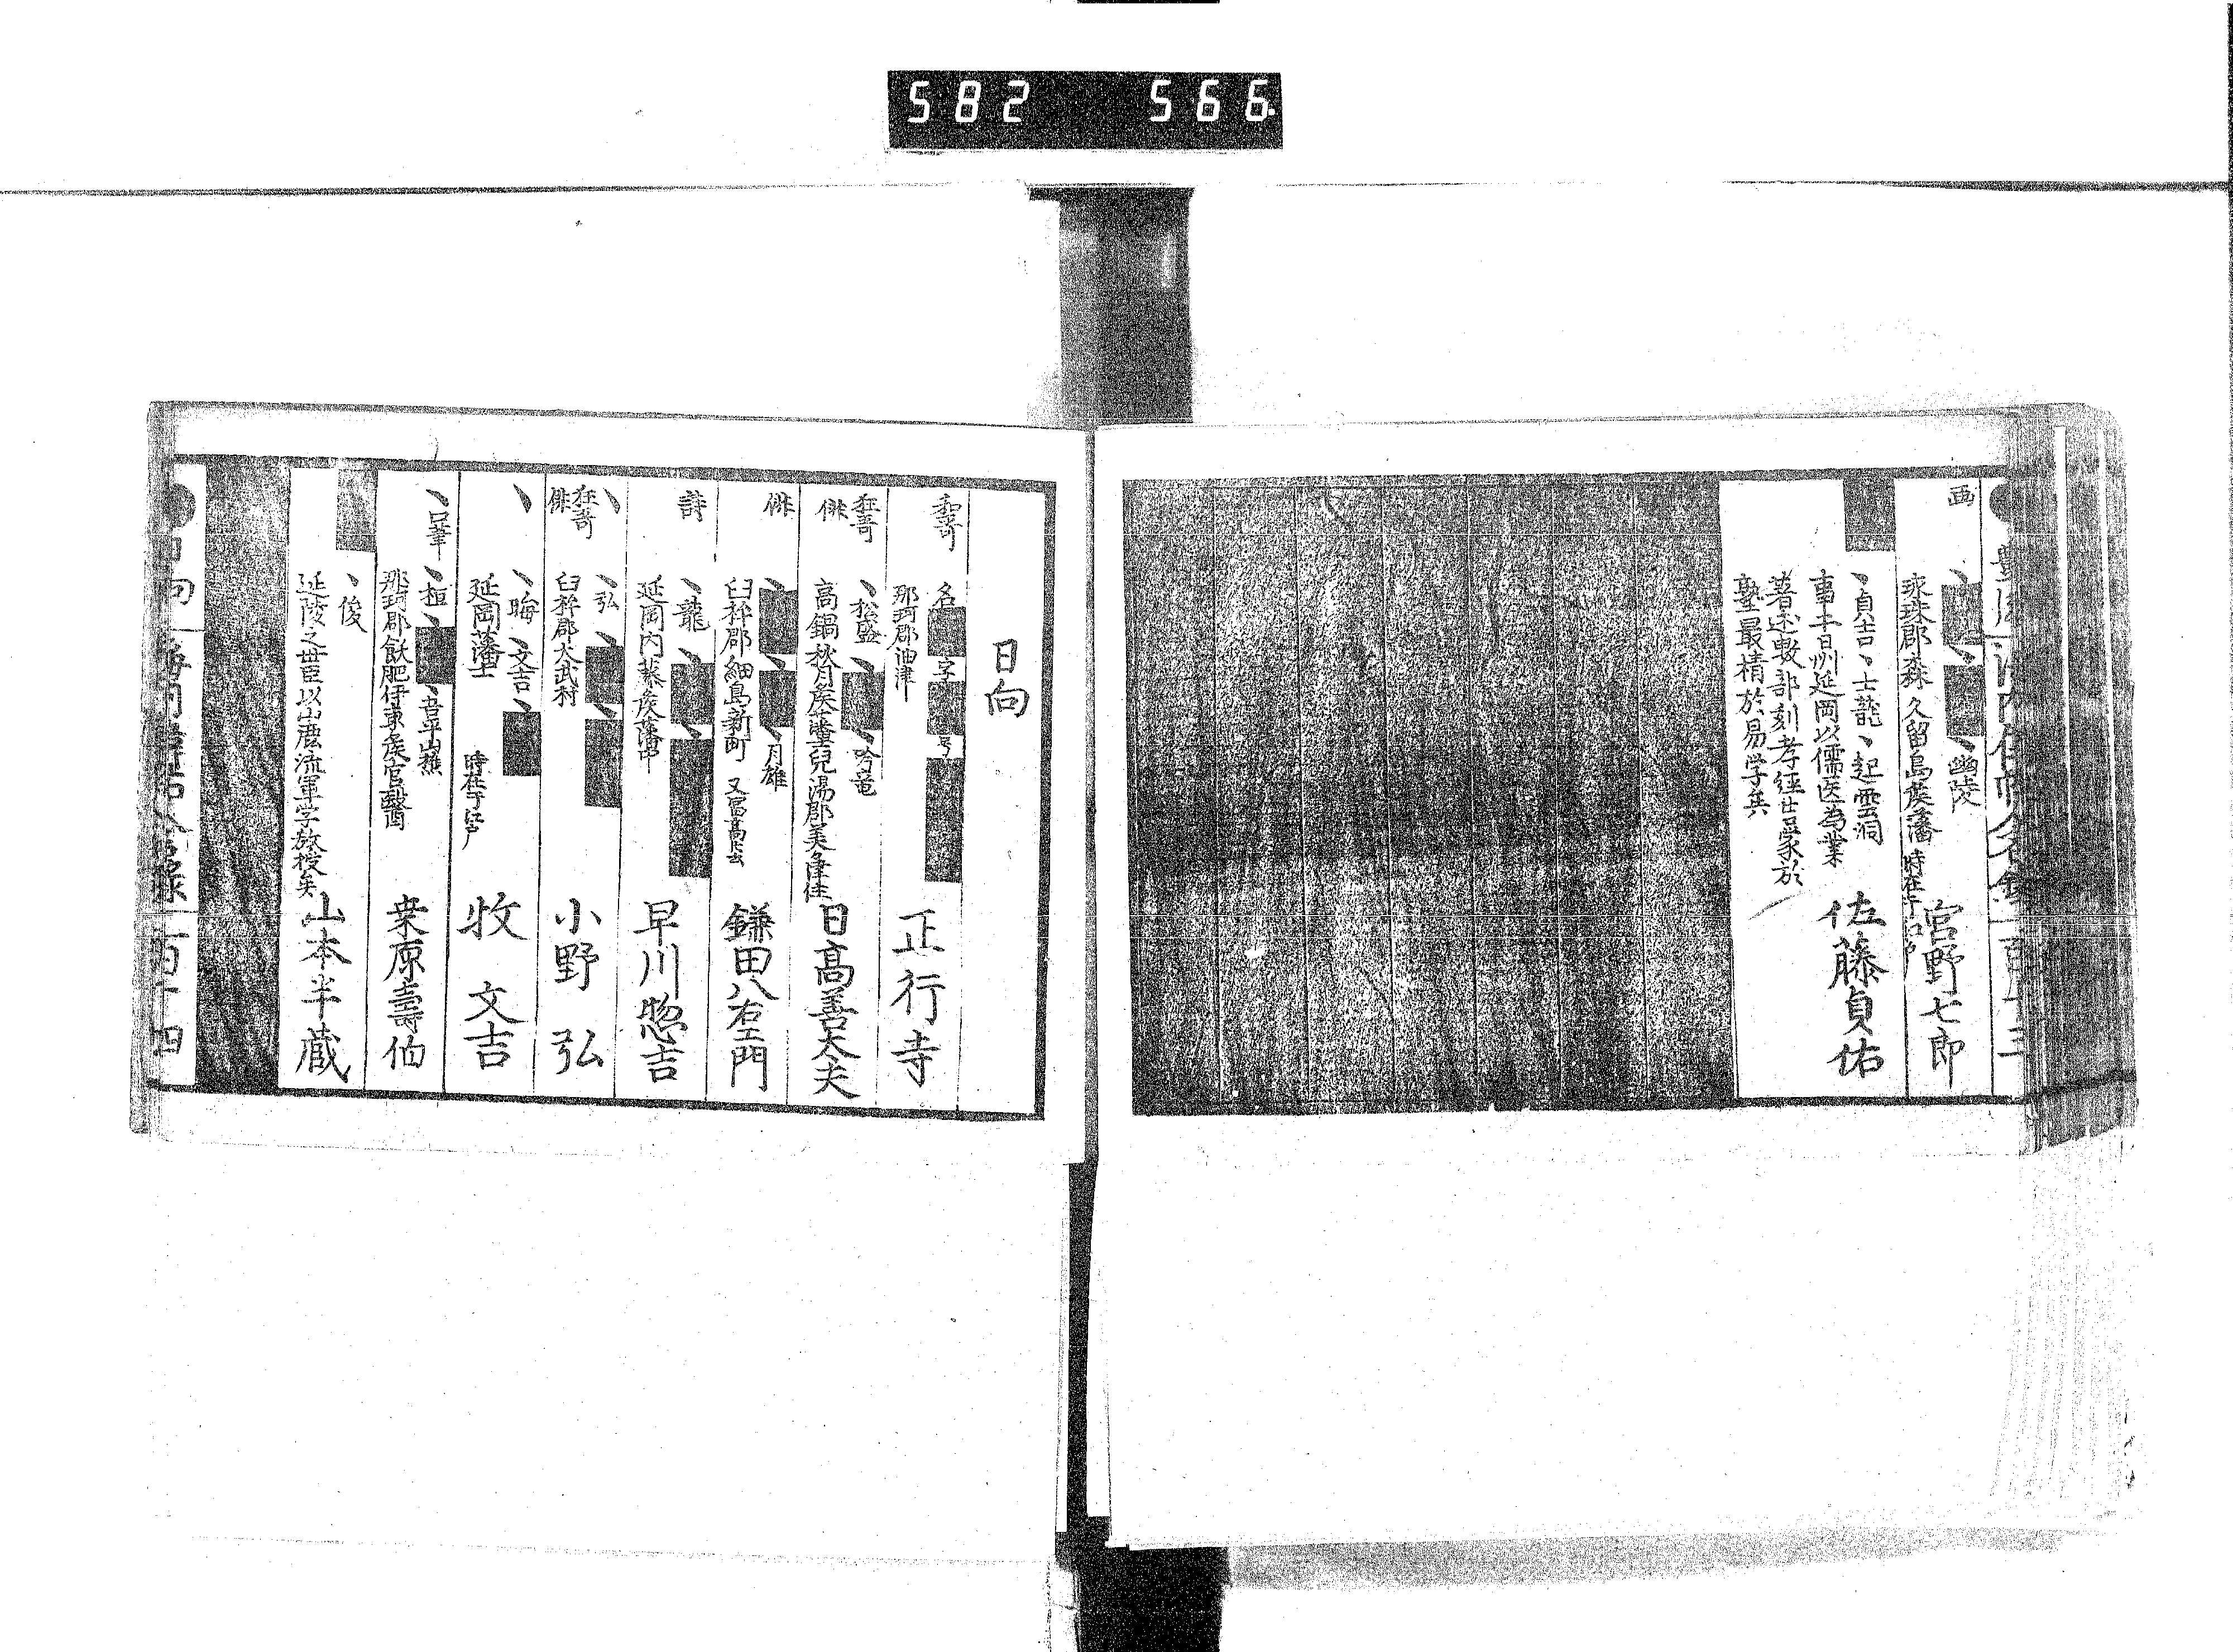 582 566
画
、 、 、幽陵
球珠郡森 久留島矦藩 時在于江戸
宮野七郎
、貞吉、士龍、起雲洞
事于日州延岡以儒医為業
著述数部刻孝経 家於
塾最精於易学矣
佐藤貞佑
百十三
日向
和哥
名 字 号
那珂郡油津
正行寺
狂哥
俳
、松盛 、 、吟竜
高鍋秋月矦 児湯郡美 住
日高善太夫
俳
、 、 、月雄
臼杵郡細島新町 又冨高 云
鎌田八右エ門
詩
、龍 、 、
延岡内藤矦藩中
早川惣吉
、
狂哥
俳
、弘 、 、
臼杵郡大武村
小野 弘
、
、晦 、文吉 、
延岡藩士 時在于江戸
牧 文吉
、
、桓 、 、音平山樵
那珂郡飫肥伊東矦官醫
桒原壽伯
、俊
延陵之世臣以山鹿流軍学教授矣
山本半蔵
日向 海内 人名録 百十四